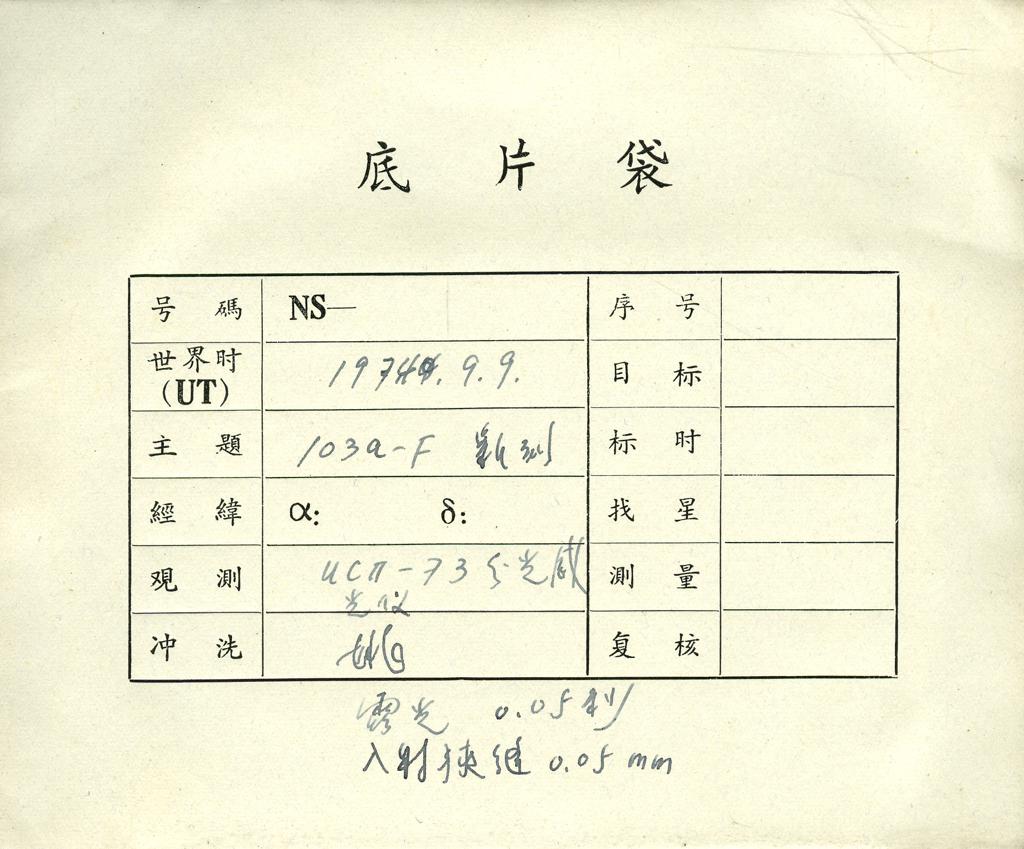 底 片 袋
号 碼 NS— 序 号
世界时 (UT) 9.9. 目 标
主 題 103a-F 标 时
經 緯 α: δ: 找 星
观 測 UCП-73 分光感光仪 測 量
冲 洗 复 核
露光 0.05秒
入射狭缝 0.05 mm